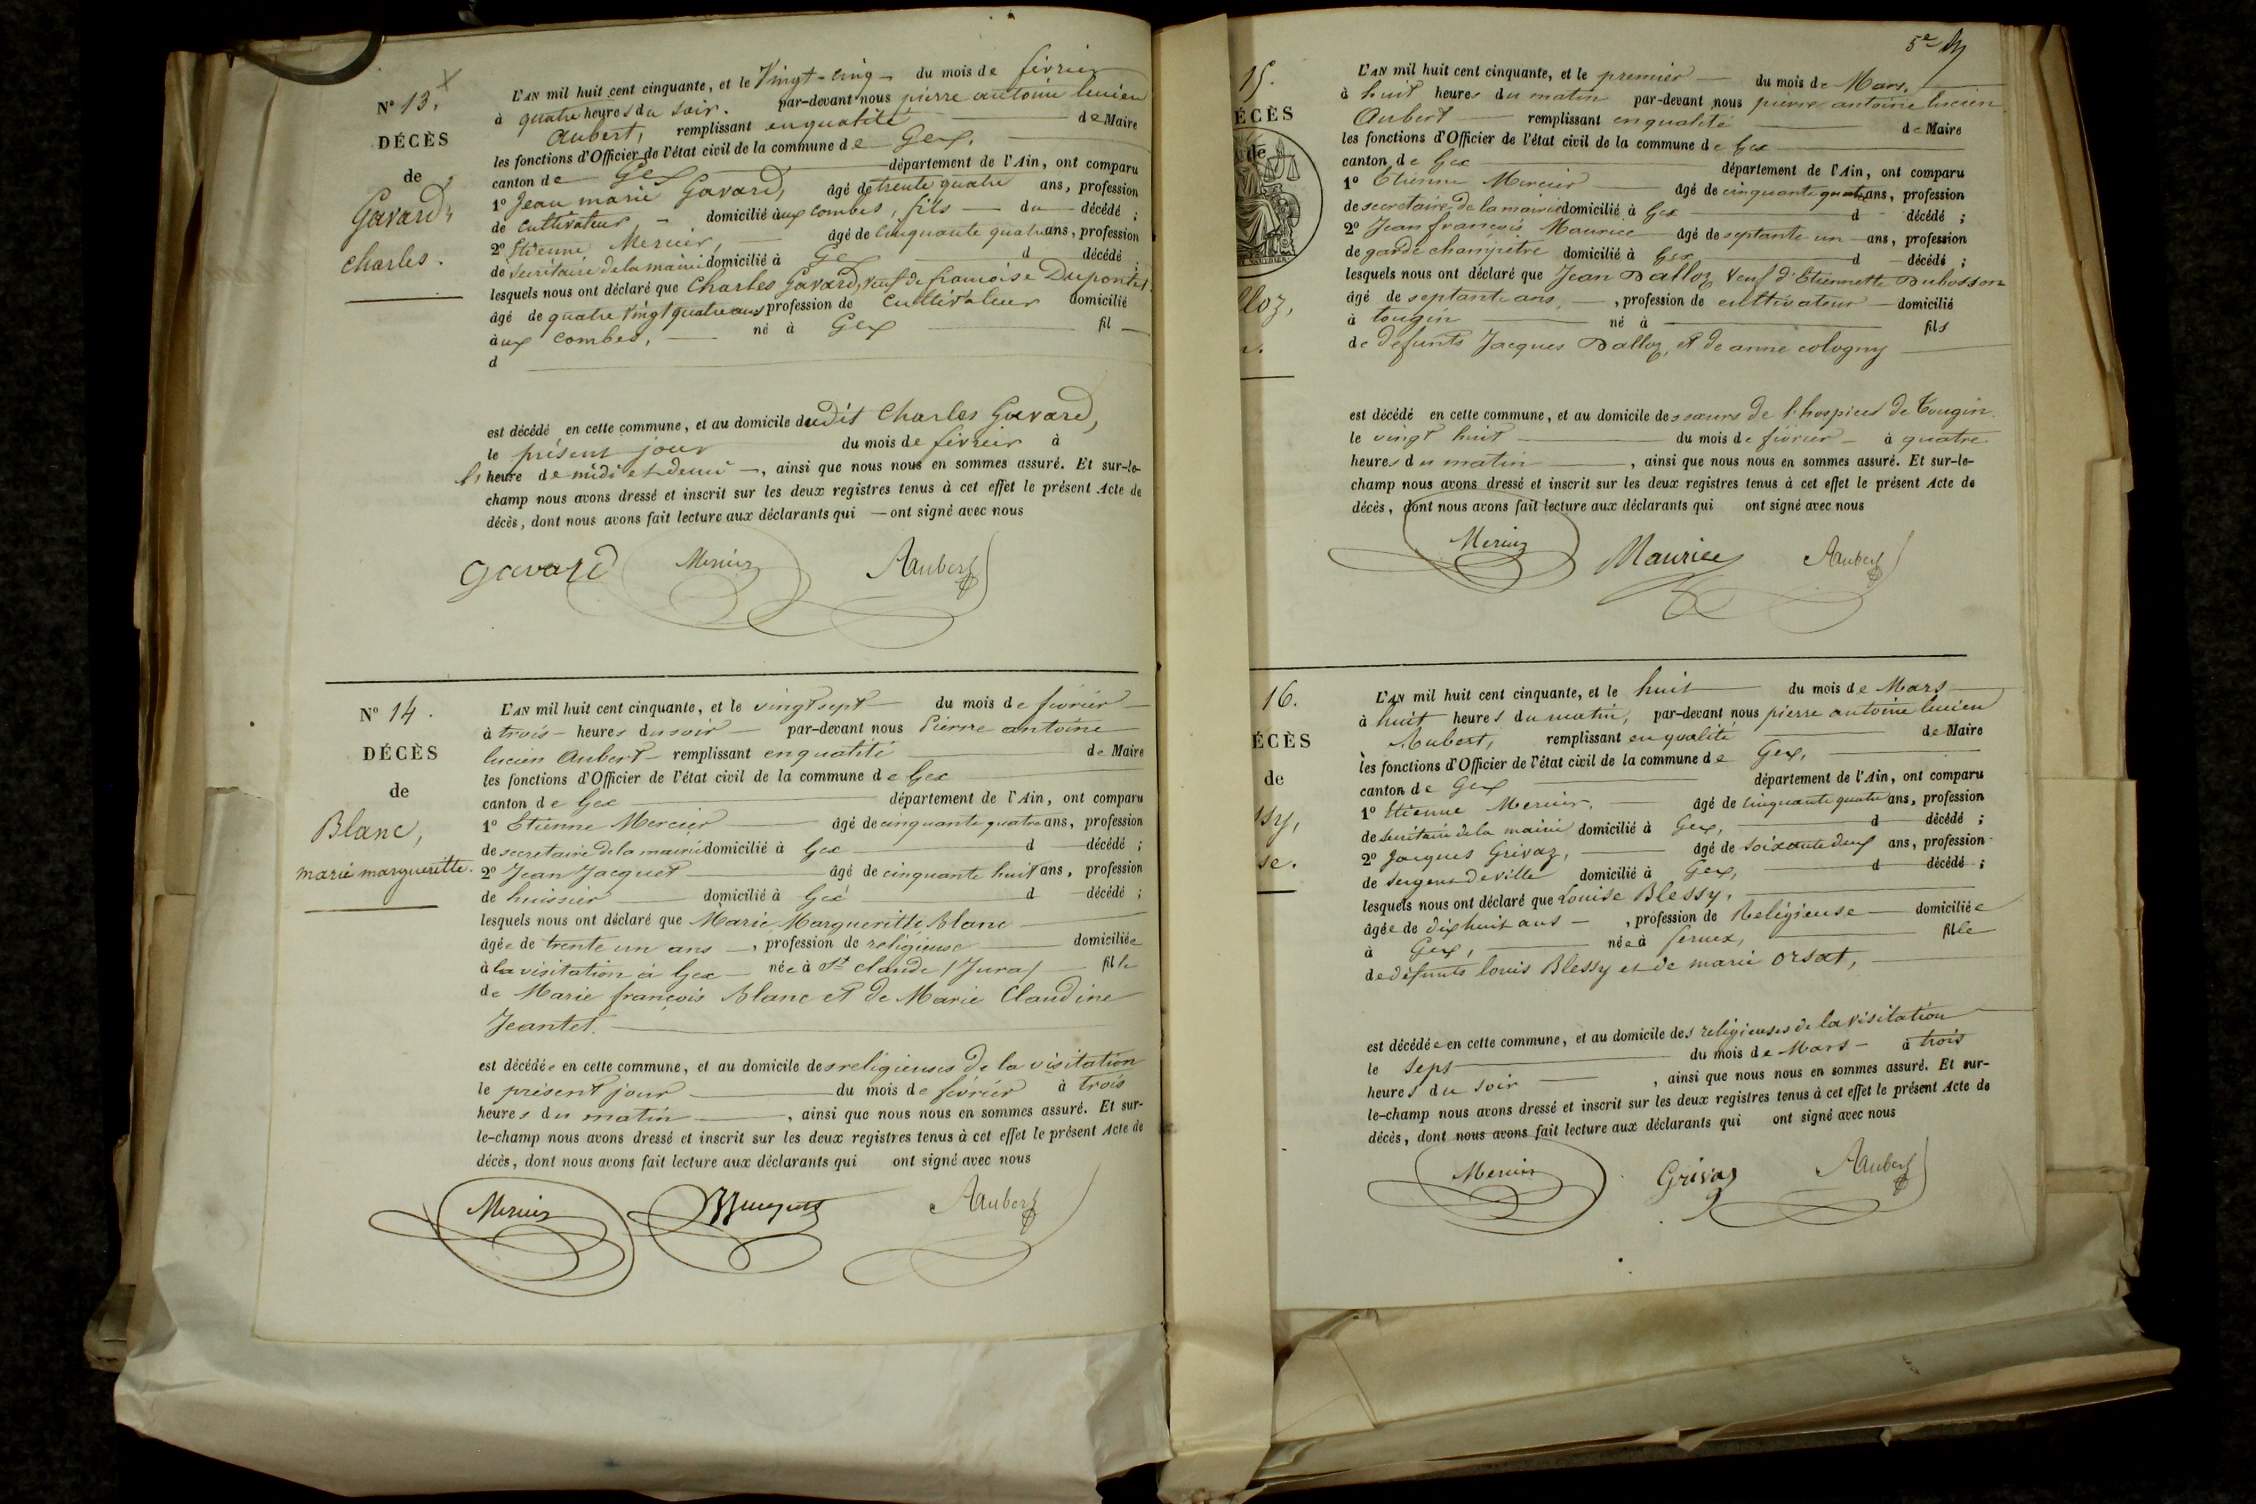 N° 13.
DÉCÈS
de
Gavard,
Charles.
L'AN mil huit cent cinquante, et le Vingt-cinq du mois de février
à quatre heures du soir. par-devant nous pierre antoine lucien
Aubert, remplissant en qualité de Maire
les fonctions d'Officier de l'état civil de la commune de Gex,
canton de Gex département de l'Ain, ont comparu
1° Jean marie Gavard, âgé de trente quatre ans, profession
de cultivateur domicilié aux combes, fils du décédé ;
2° Etienne Mercier, âgé de cinquante quatre ans, profession
de secrétaire de la mairie domicilié à Gex d décédé ;
lesquels nous ont déclaré que Charles Gavard, veuf de françoise Dupontet
âgé de quatre vingt quatre ans profession de cultivateur domicilié
aux combes, né à Gex fil
d
est décédé en cette commune, et au domicile dudit Charles Gavard,
le présent jour du mois de février à
l' heure de midi et demi, ainsi que nous nous en sommes assuré. Et sur-le-
champ nous avons dressé et inscrit sur les deux registres tenus à cet effet le présent Acte de
décès, dont nous avons fait lecture aux déclarants qui ont signé avec nous
gavard Mercier Aubert
N° 14.
DÉCÈS
de
Blanc,
marie marguerite.
L'AN mil huit cent cinquante, et le vingt sept du mois de février
à trois heures du soir par-devant nous Pierre antoine
lucien Aubert remplissant en qualité de Maire
les fonctions d'Officier de l'état civil de la commune de Gex
canton de Gex département de l'Ain, ont comparu
1° Etienne Mercier âgé de cinquante quatre ans, profession
de secretaire de la mairie domicilié à Gex d décédé ;
2° Jean Jacquet âgé de cinquante huit ans, profession
de huissier domicilié à Gex d décédé ;
lesquels nous ont déclaré que Marie Margueritte Blanc
âgée de trente un ans, profession de religieuse domiciliée
à la visitation à Gex née à St claude (Jura) fille
de Marie françois Blanc et de Marie Claudine
Jeantet.
est décédée en cette commune, et au domicile des religieuses de la visitation
le présent jour du mois de février à trois
heures du matin, ainsi que nous nous en sommes assuré. Et sur-
le-champ nous avons dressé et inscrit sur les deux registres tenus à cet effet le présent Acte de
décès, dont nous avons fait lecture aux déclarants qui ont signé avec nous
Mercier Aubert
5e
15.
ÉCÈS
de
lloz,
L'AN mil huit cent cinquante, et le premier du mois de Mars.
à huit heures du matin par-devant nous pierre antoine lucien
Aubert remplissant en qualité de Maire
les fonctions d'Officier de l'état civil de la commune de Gex
canton de Gex département de l'Ain, ont comparu
1° Etienne Mercier âgé de cinquante quatre ans, profession
de secretaire de la mairie domicilié à Gex d décédé ;
2° Jean françois Maurice âgé de septante un ans, profession
de garde champêtre domicilié à Gex d décédé ;
lesquels nous ont déclaré que Jean Dalloz veuf d'Etiennette Dubosson
âgé de septante ans, profession de cultivateur domicilié
à tougin né à fils
de défunts Jacques Dalloz, et de anne cologny
est décédé en cette commune, et au domicile des soeurs de l'hospice de Tougin.
le vingt huit du mois de février à quatre
heures du matin, ainsi que nous nous en sommes assuré. Et sur-le-
champ nous avons dressé et inscrit sur les deux registres tenus à cet effet le présent Acte de
décès, dont nous avons fait lecture aux déclarants qui ont signé avec nous
Mercier Maurice Aubert
16.
ÉCÈS
de
ssy,
se.
L'AN mil huit cent cinquante, et le huit du mois de Mars
à huit heures du matin, par-devant nous pierre antoine lucien
Aubert, remplissant en qualité de Maire
les fonctions d'Officier de l'état civil de la commune de Gex,
canton de Gex département de l'Ain, ont comparu
1° Etienne Mercier, âgé de cinquante quatre ans, profession
de secrétaire de la mairie domicilié à Gex, d décédé ;
2° Jacques Grivaz, âgé de soixante deux ans, profession
de sergent de ville domicilié à Gex, d décédé ;
lesquels nous ont déclaré que Louise Blessy,
âgée de dix huit ans, profession de Religieuse domiciliée
à Gex, née à fernex, fille
de défunts louis Blessy et de marie Orsat,
est décédée en cette commune, et au domicile des religieuses de la visitation
le sept du mois de Mars à trois
heures du soir, ainsi que nous nous en sommes assuré. Et sur-
le-champ nous avons dressé et inscrit sur les deux registres tenus à cet effet le présent Acte de
décès, dont nous avons fait lecture aux déclarants qui ont signé avec nous
Mercier Grivaz Aubert